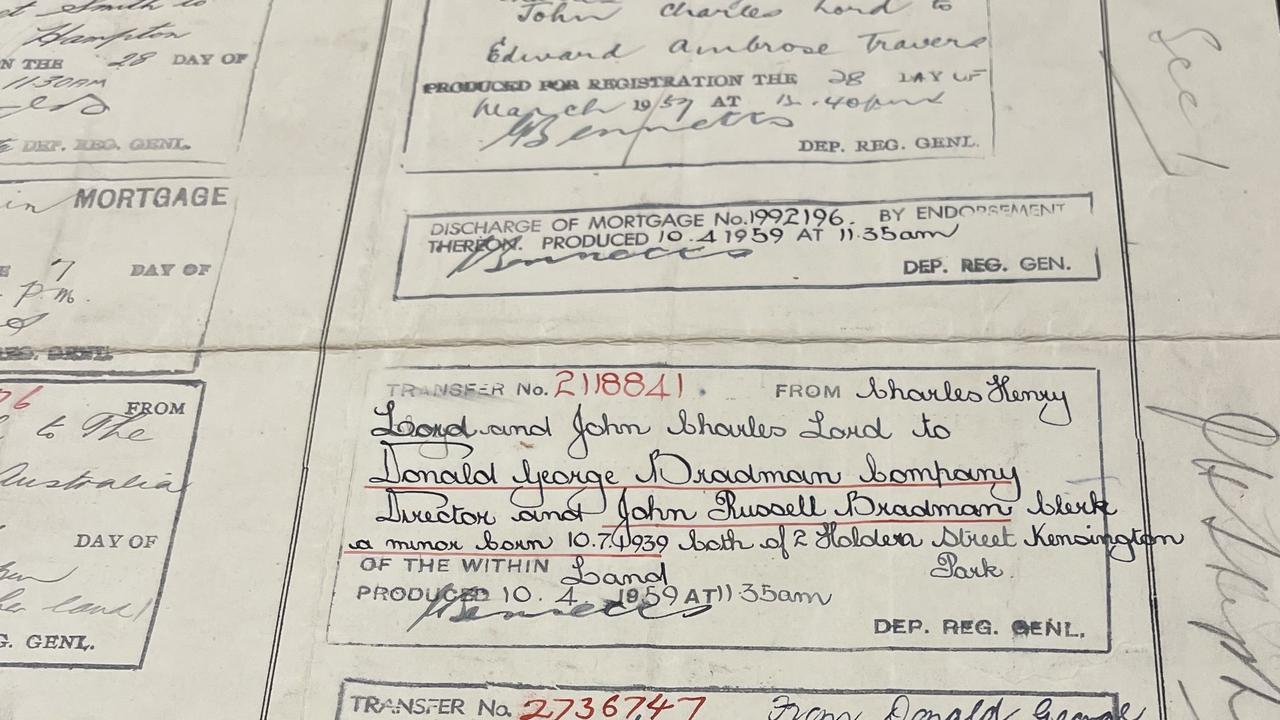 Smith to
Hampton
N THE 28 DAY OF
11.30AM
DEP. REG. GENL.
in MORTGAGE
7 DAY OF
P.m.
REG. GENL.
76 FROM
to The
Australia
DAY OF
land
G. GENL.
John Charles Lord to
Edward Ambrose Travers
PRODUCED FOR REGISTRATION THE 28 DAY OF
March 1957 AT 12.40pm
Bennetts
DEP. REG. GENL.
DISCHARGE OF MORTGAGE No.1992196. BY ENDORSEMENT
THEREON. PRODUCED 10.4 1959 AT 11.35am
Bennetts
DEP. REG. GEN.
TRANSFER No. 2118841. FROM Charles Henry
Lord and John Charles Lord to
Donald George Bradman Company
Director and John Russell Bradman clerk
a minor born 10.7.1939 both of 2 Holden Street Kensington
Park
OF THE WITHIN Land
PRODUCED 10. 4. 1959 AT 11 35am
Bennetts
DEP. REG. GENL.
TRANSFER No. 2736747 From Donald George
See